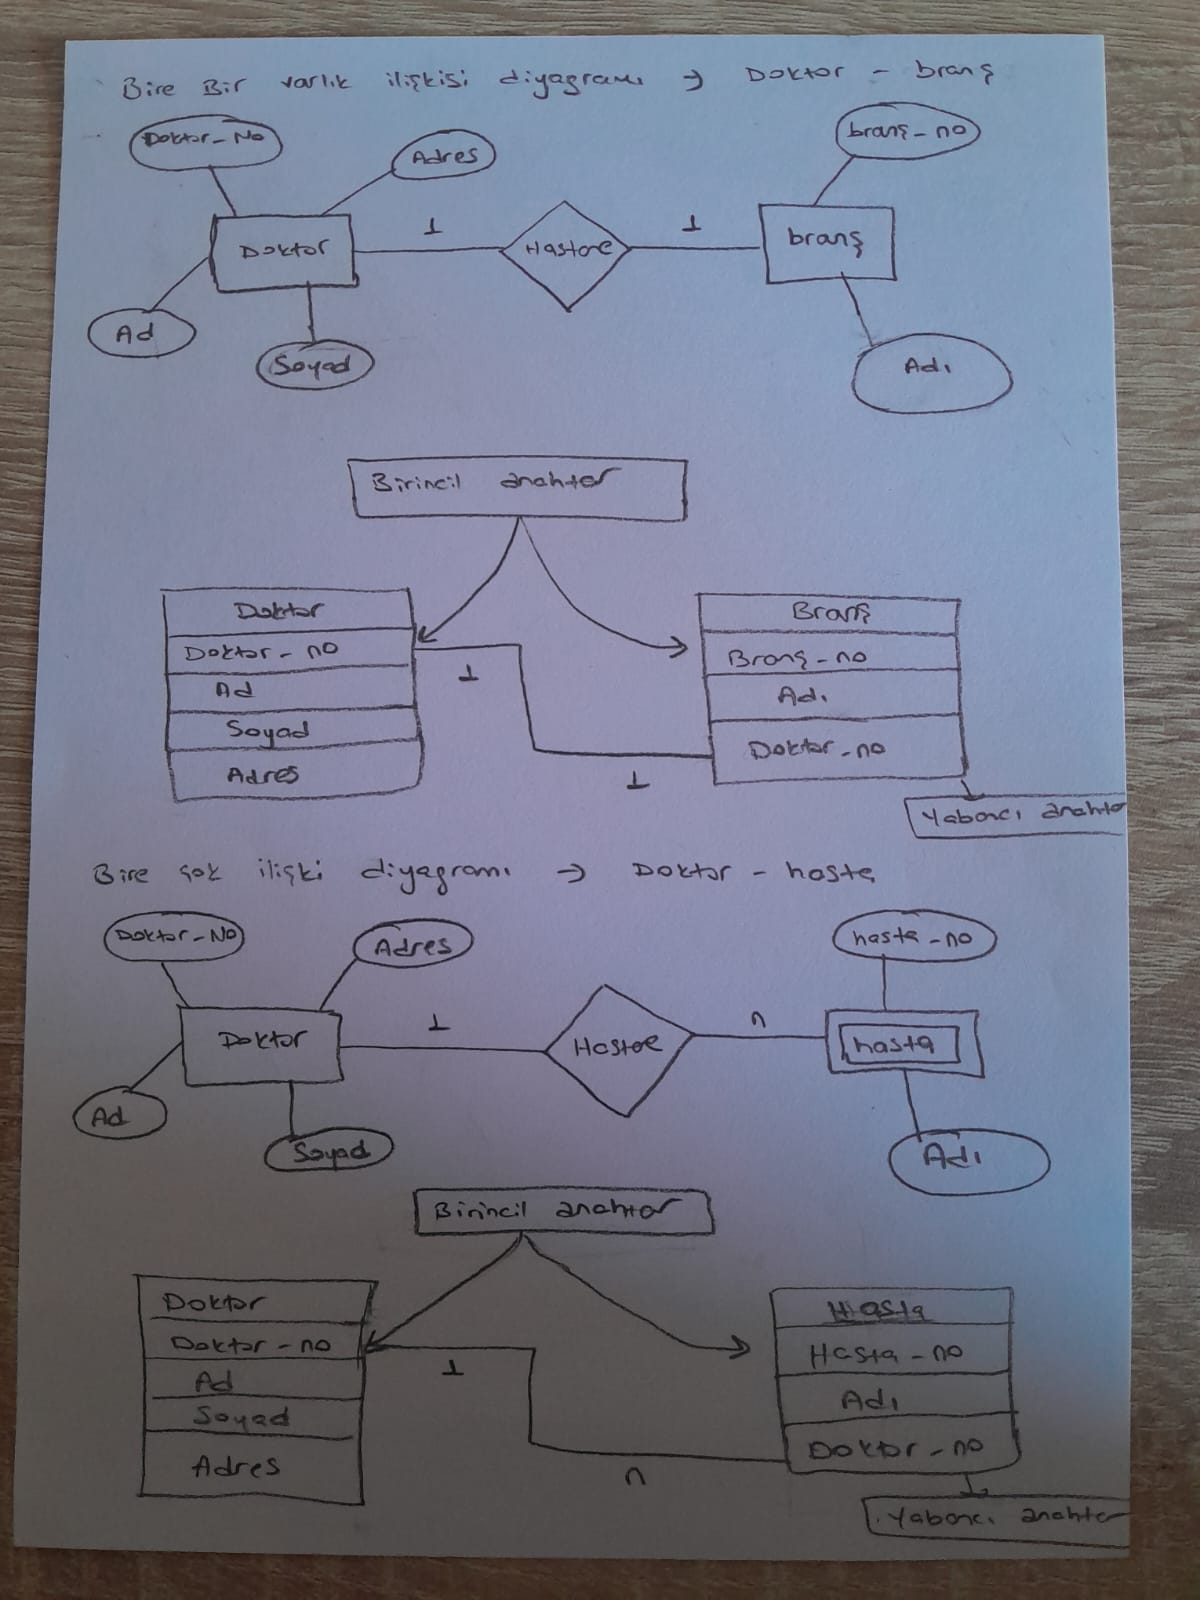 Bire Bir varlık ilişkisi diyagramı → Doktor - branş
Doktor-No
Adres
branş-no
Doktor
1
Hastane
1
branş
Ad
Soyad
Adı
Birincil anahtar
Doktor
Doktor-no
Ad
Soyad
Adres
1
1
Branş
Branş-no
Adı
Doktor-no
Yabancı anahtar
Bire çok ilişki diyagramı → Doktor - hasta
Doktor-No
Adres
hasta-no
Doktor
1
n
hasta
Ad
Soyad
Adı
Birincil anahtar
Doktor
Doktor-no
Ad
Soyad
Adres
1
n
Hasta
Hasta-no
Adı
Doktor-no
Yabancı